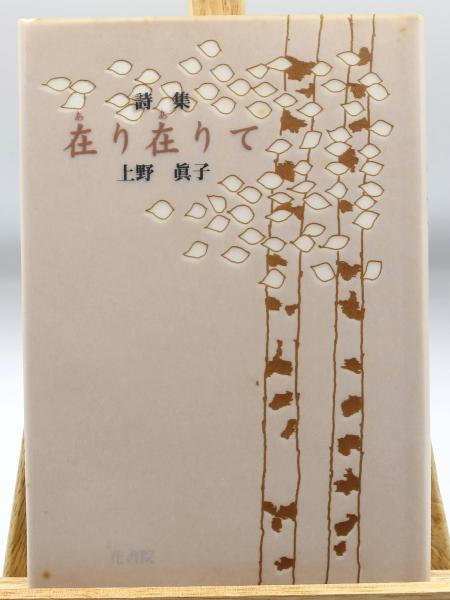 詩集
在り在りて
ああ
上野 眞子
花書院